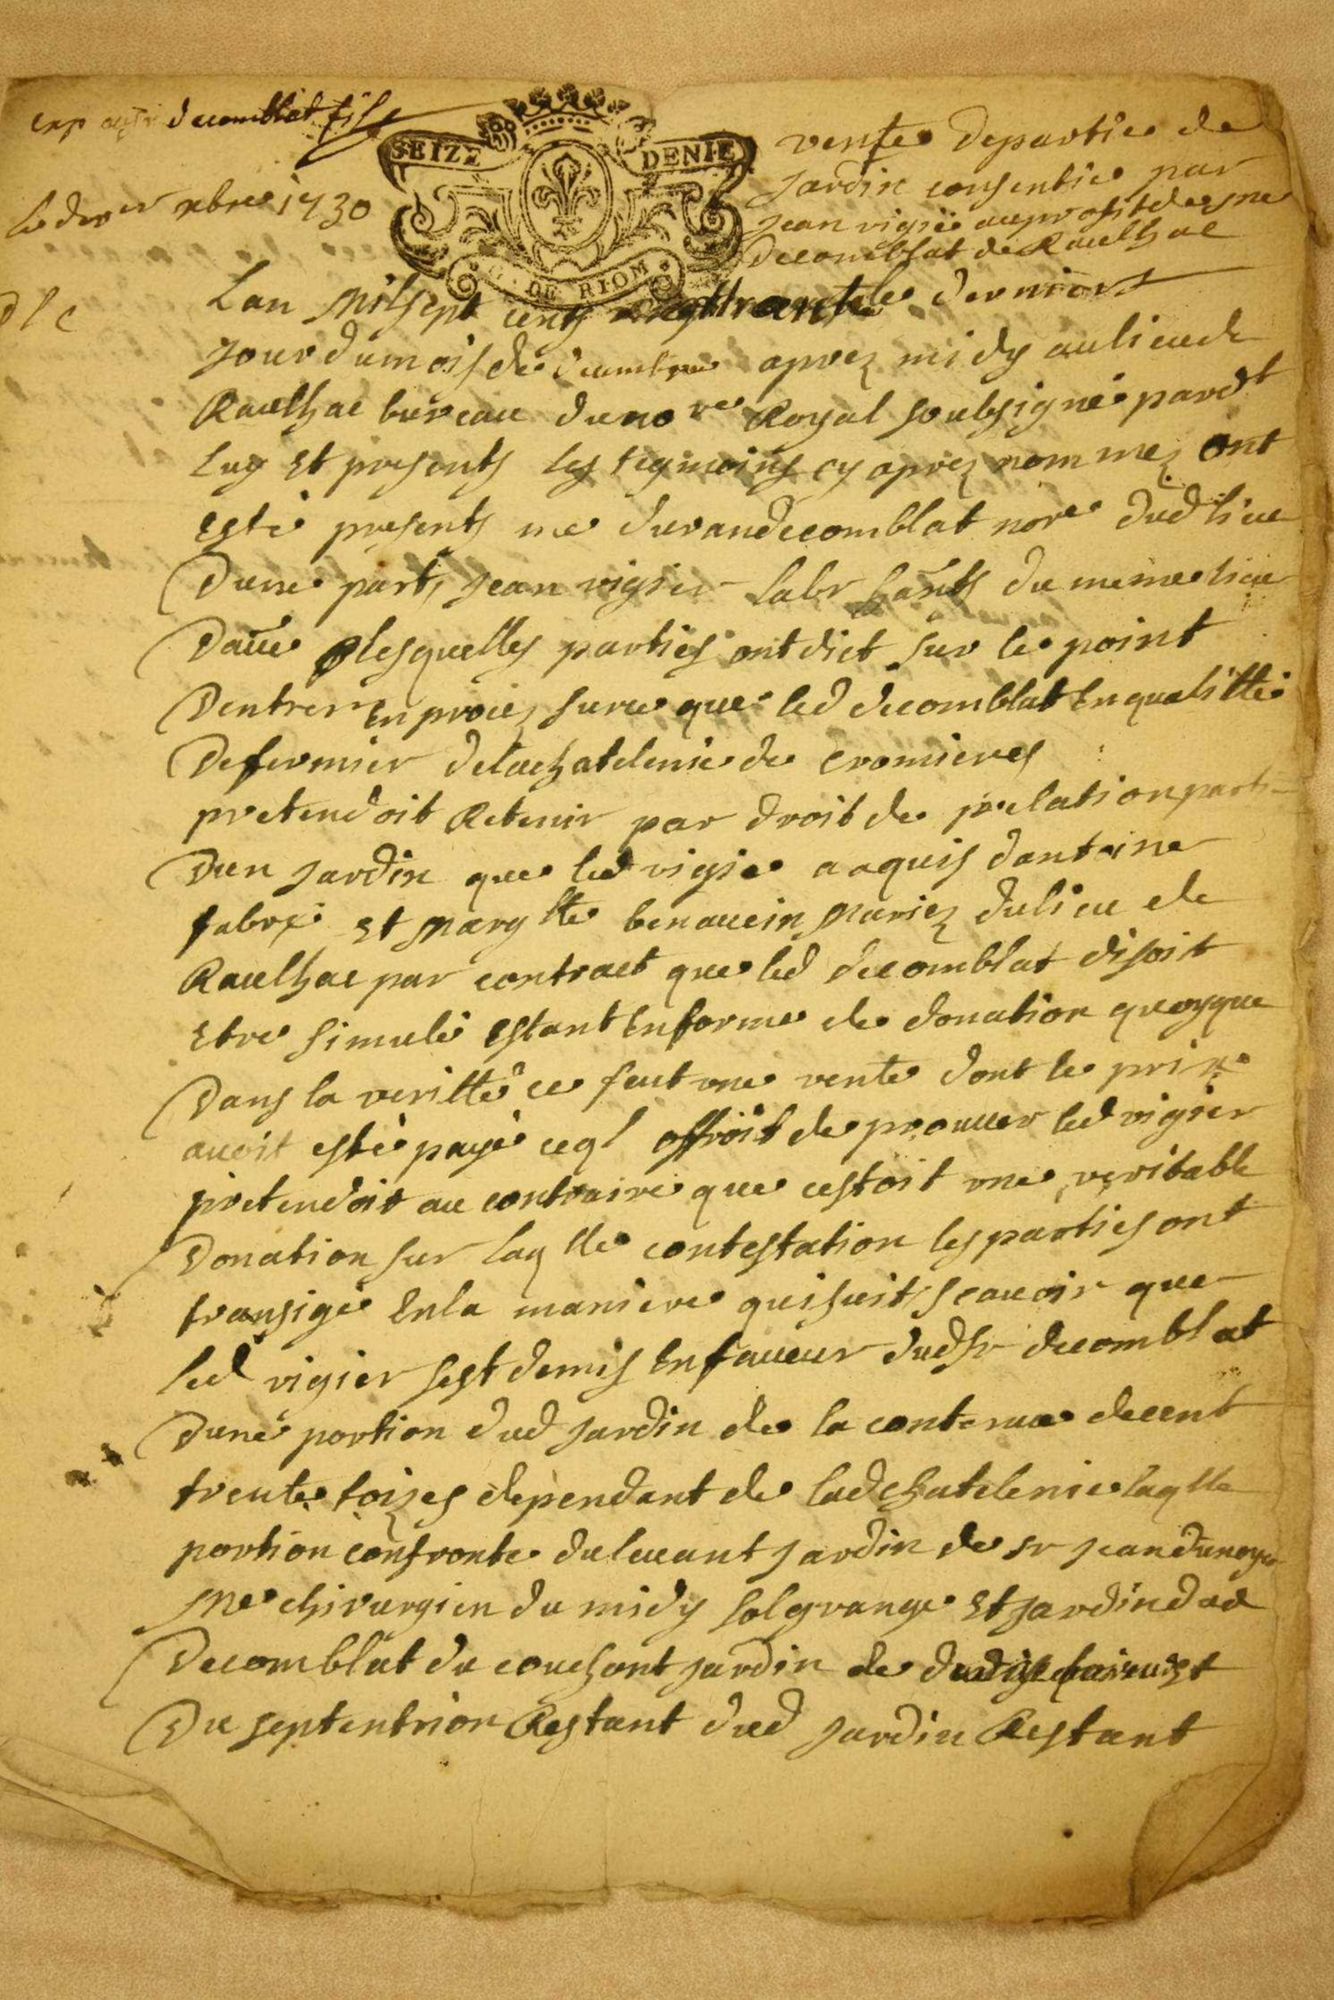 exp decomblat fils
le der xbre 1730
SEIZE DENIE
G. DE RIOM
vente departie de
Jardin consentie par
Jean vigié auprofit de me
decomblat de Raulhac
Lan Milsept cents trante le dernier
Jour dumois de decembre aprez midy aulieude
Raulhac bureau du nore Royal soubsigné pardt
luy Et presents les tesmoins cy aprez nommez ont
Esté presents me durandecomblat nore dud lieu
Dune part Jean vigier labr hants du meme lieu
Dauue lesquelles parties ont dict sur le point
Dentrer En procez surce que led decomblat En qualitté
Defermier delachatelenie de cromieres
pretendoit Retenir par droit de prelation parti
Dun Jardin que led vigié a aquis dantoine
fabre Et Margtte benauein Mariez dulieu de
Raulhac par contract que led decomblat disoit
Etre simulé EstantEnforme de donation quoyque
Dans la veritté ce feut une vente dont le prix
avoit esté payé ceql offroit de prouuer led vigier
pretendoit au contraire que cestoit une veritable
Donation sur laqlle contestation les parties ont
transigé Enla maniere quisuit scauoir que
led vigier sest demis En faueur dudsr decomblat
Dune portion dud Jardin de la contenue decent
trente toizes dependant de lad chatelenie laqlle
portion confronte duleuant Jardin de sr Jean dunoyer
Me chirurgien du midy solgrange Et Jardin dud
Decomblat du couchant Jardin de Et
Du septentrion Restant dud Jardin Restant